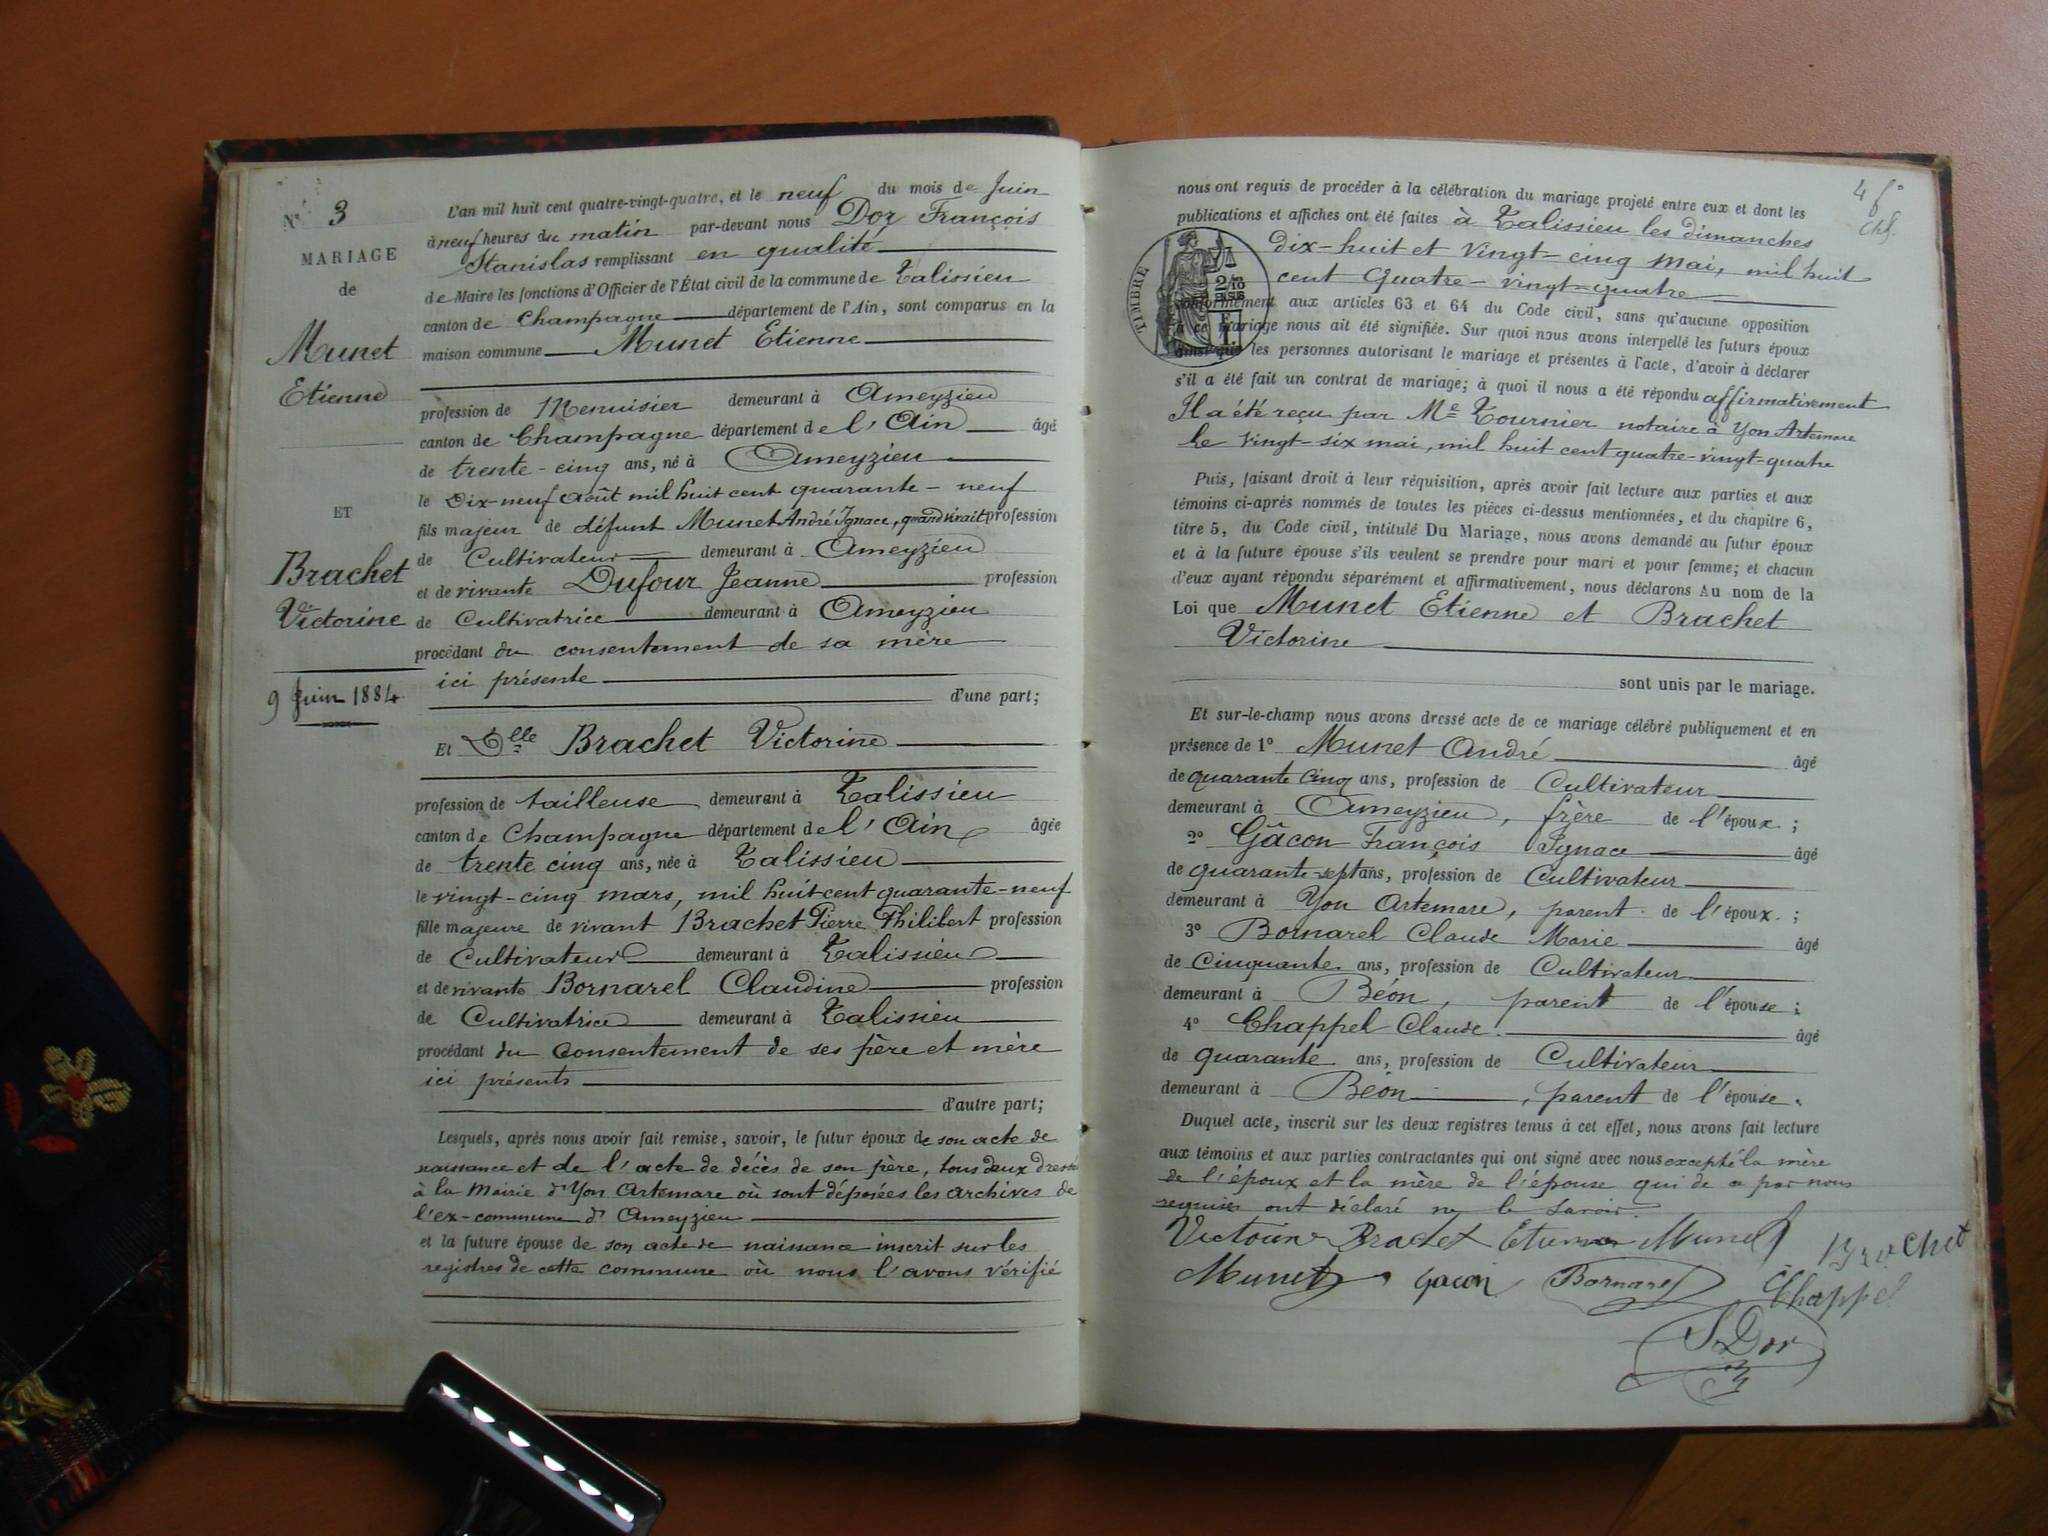 N° 3
MARIAGE
de
Munet
Etienne
ET
Brachet
Victorine
9 Juin 1884
L'an mil huit cent quatre-vingt-quatre, et le neuf du mois de Juin
à neuf heures du matin par-devant nous Dor François
Stanislas remplissant en qualité
de Maire les fonctions d'Officier de l'État civil de la commune de Talissieu
canton de Champagne département de l'Ain, sont comparus en la
maison commune Munet Etienne
profession de Menuisier demeurant à Ameyzieu
canton de Champagne département de l'Ain âgé
de trente-cinq ans, né à Ameyzieu
le Dix-neuf août mil huit cent quarante-neuf
fils majeur de défunt Munet André Ignace, quand vivait profession
de Cultivateur demeurant à Ameyzieu
et de vivante Dufour Jeanne profession
de Cultivatrice demeurant à Ameyzieu
procédant du consentement de sa mère
ici présente
d'une part;
Et Dlle Brachet Victorine
profession de tailleuse demeurant à Talissieu
canton de Champagne département de l'Ain âgée
de trente cinq ans, née à Talissieu
le vingt-cinq mars, mil huit cent quarante-neuf
fille majeure de vivant Brachet Pierre Philibert profession
de Cultivateur demeurant à Talissieu
et de vivante Bornarel Claudine profession
de Cultivatrice demeurant à Talissieu
procédant du consentement de ses père et mère
ici présents
d'autre part;
Lesquels, après nous avoir fait remise, savoir, le futur époux de son acte de
naissance et de l'acte de décès de son père, tous deux dressés
à la Mairie d'Yon Artemare où sont déposées les archives de
l'ex-commune d'Ameyzieu
et la future épouse de son acte de naissance inscrit sur les
registres de cette commune où nous l'avons vérifié
4 f°
nous ont requis de procéder à la célébration du mariage projeté entre eux et dont les
publications et affiches ont été faites à Talissieu les dimanches
dix-huit et vingt-cinq mai, mil huit
cent quatre-vingt-quatre
TIMBRE
2/10
EN SUS
F.
1.
conformément aux articles 63 et 64 du Code civil, sans qu'aucune opposition
à ce mariage nous ait été signifiée. Sur quoi nous avons interpellé les futurs époux
ainsi que les personnes autorisant le mariage et présentes à l'acte, d'avoir à déclarer
s'il a été fait un contrat de mariage; à quoi il nous a été répondu affirmativement
Il a été reçu par Me Tournier notaire à Yon Artemare
le vingt-six mai, mil huit cent quatre-vingt-quatre
Puis, faisant droit à leur réquisition, après avoir fait lecture aux parties et aux
témoins ci-après nommés de toutes les pièces ci-dessus mentionnées, et du chapitre 6,
titre 5, du Code civil, intitulé Du Mariage, nous avons demandé au futur époux
et à la future épouse s'ils veulent se prendre pour mari et pour femme; et chacun
d'eux ayant répondu séparément et affirmativement, nous déclarons Au nom de la
Loi que Munet Etienne et Brachet
Victorine
sont unis par le mariage.
Et sur-le-champ nous avons dressé acte de ce mariage célébré publiquement et en
présence de 1° Munet André âgé
de quarante cinq ans, profession de Cultivateur
demeurant à Ameyzieu, frère de l'époux;
2° Gâcon François Ignace âgé
de quarante-sept ans, profession de Cultivateur
demeurant à Yon Artemare, parent de l'époux;
3° Bornarel Claude Marie âgé
de Cinquante ans, profession de Cultivateur
demeurant à Béon, parent de l'épouse;
4° Chappel Claude âgé
de quarante ans, profession de Cultivateur
demeurant à Béon, parent de l'épouse.
Duquel acte, inscrit sur les deux registres tenus à cet effet, nous avons fait lecture
aux témoins et aux parties contractantes qui ont signé avec nous excepté la mère
de l'époux et la mère de l'épouse qui de ce par nous
requises ont déclaré ne le savoir.
Victorine Brachet Etienne Munet Brachet
Munet Gacon Bornarel Chappel
S. Dor